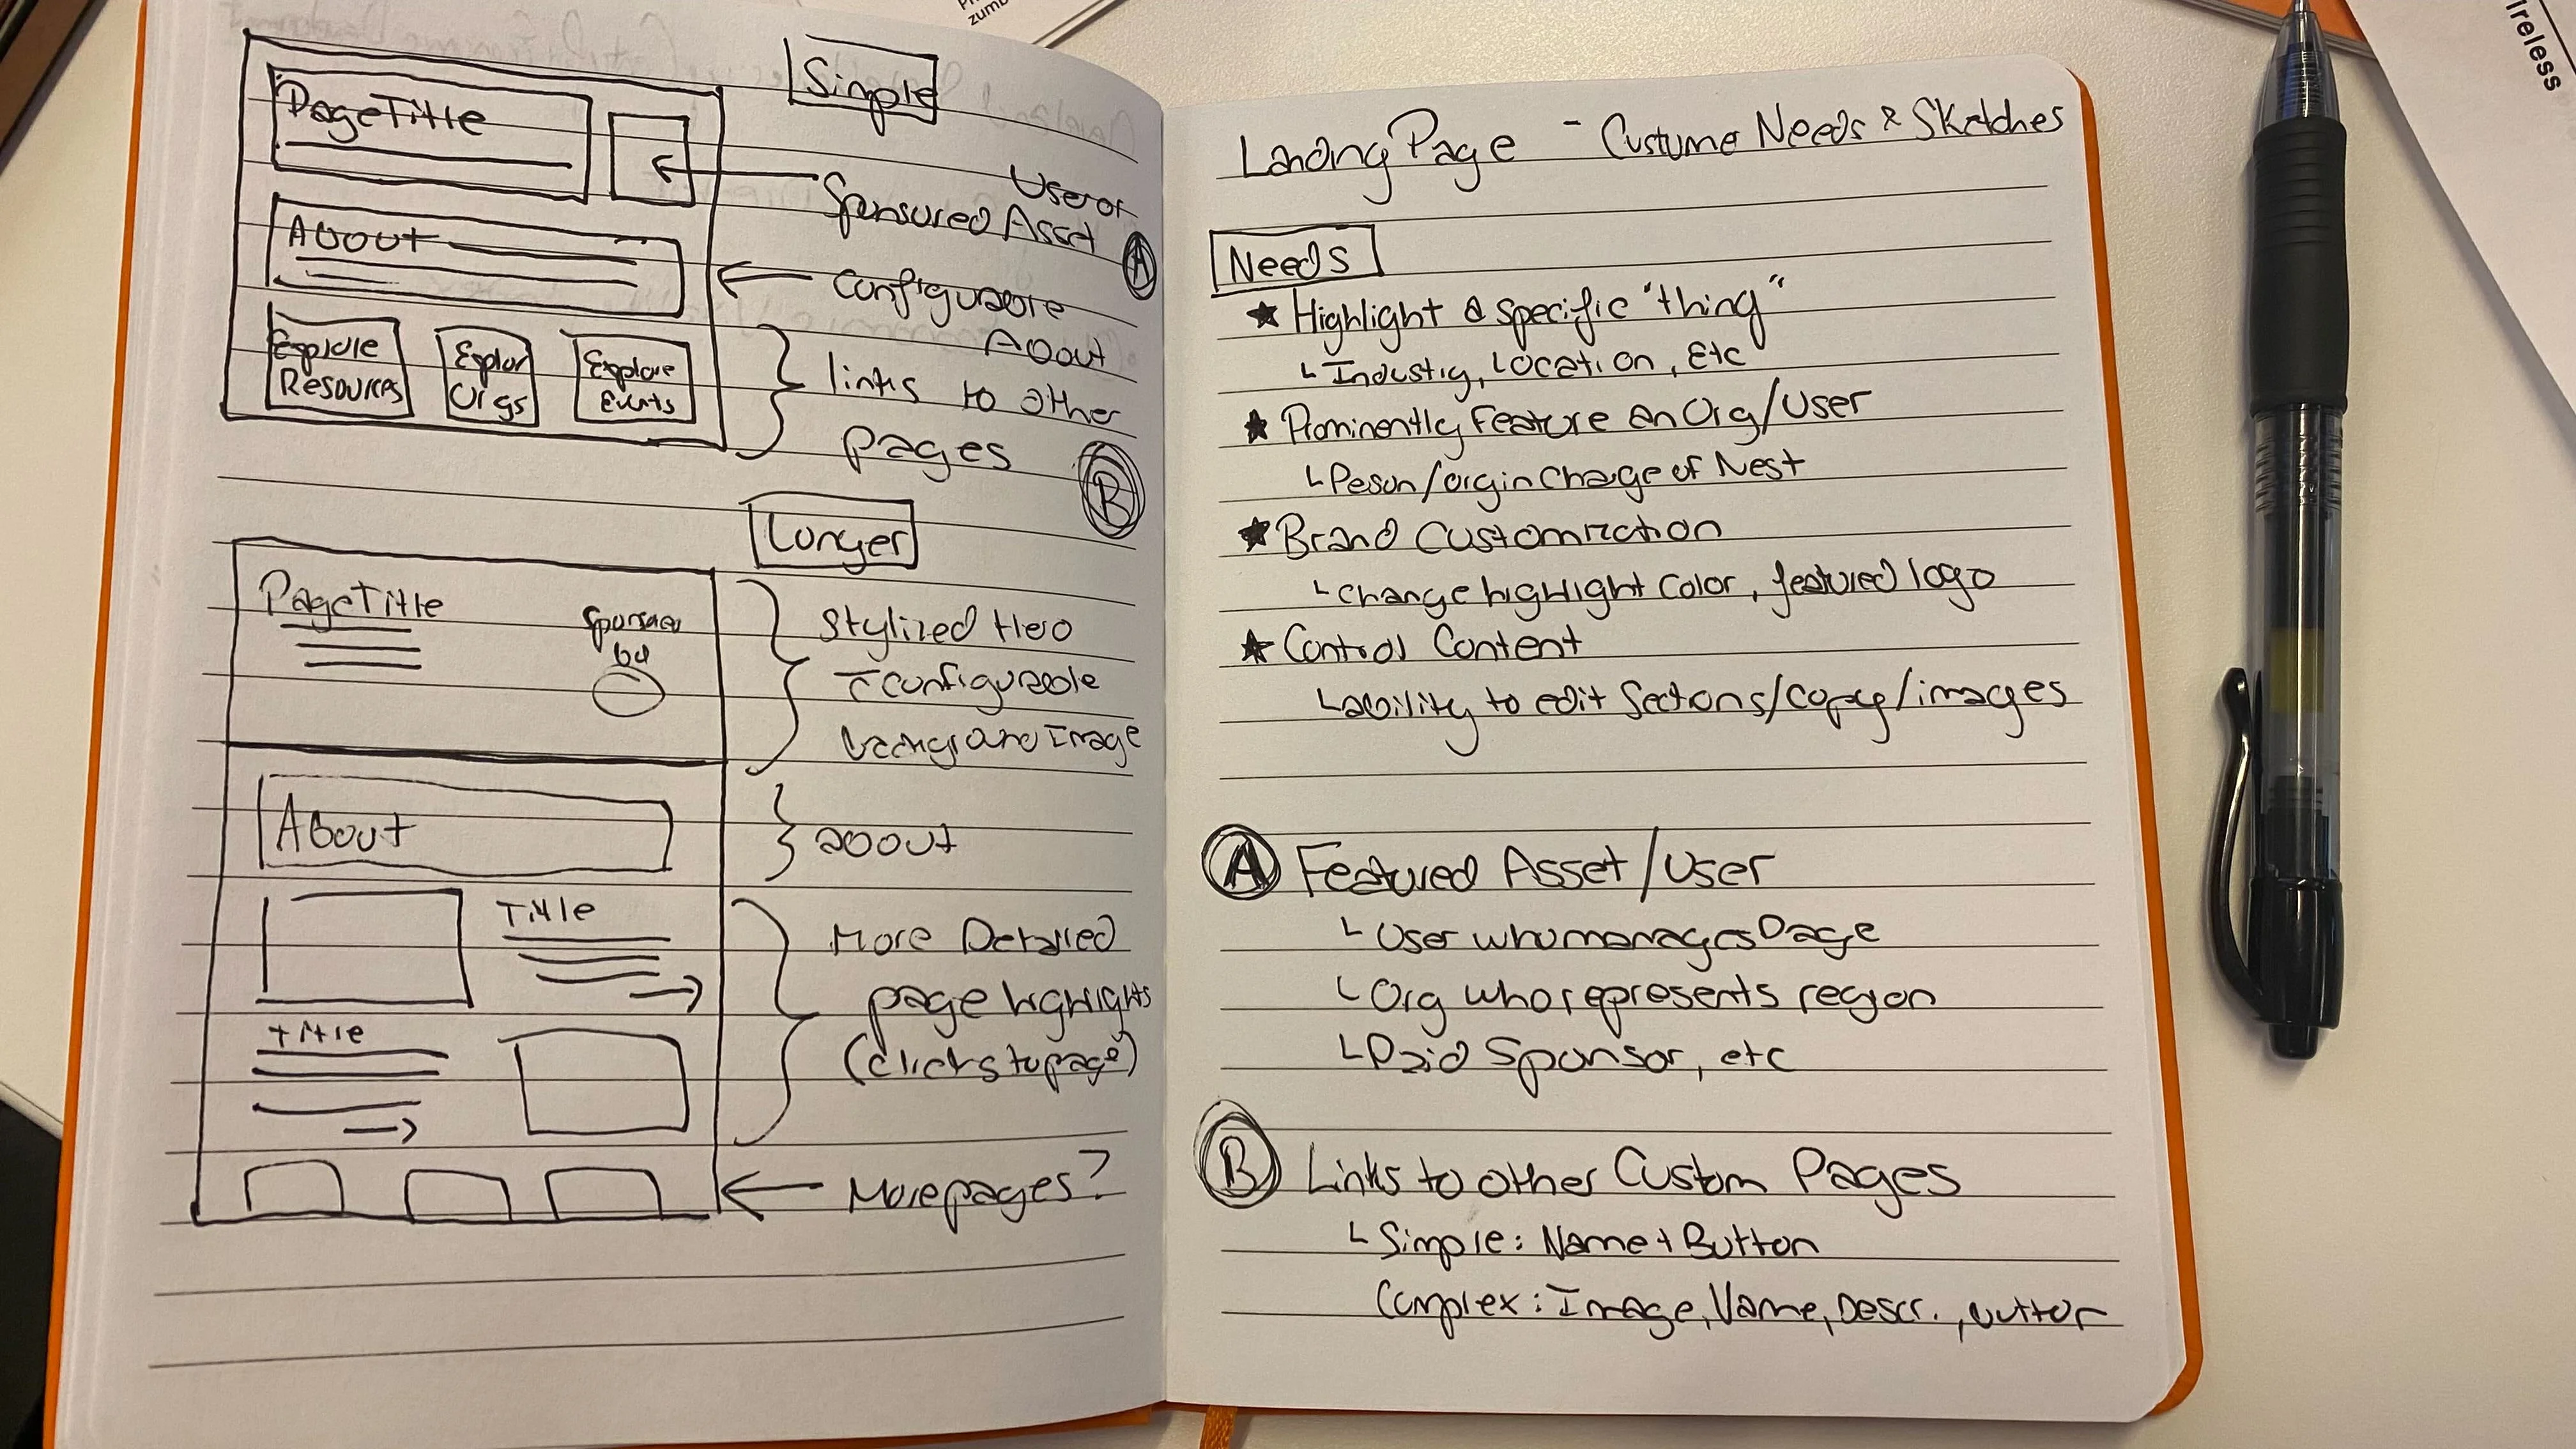 Simple
Page Title
User or
Sponsored Asset
A
About
Configurable
About
Explore
Resources
Explor
Orgs
Explore
Events
links to other
pages
B
Longer
Page Title
Sponsored
by
Stylized Hero
configurable
background Image
About
about
Title
title
More Detailed
page highlights
(clicks to page)
More pages?
Landing Page - Custume Needs & Sketches
Needs
★ Highlight a specific "thing"
Industry, Location, Etc
★ Prominently Feature an Org/User
Peson/org in charge of Nest
★ Brand Customization
change highlight color, featured logo
★ Control Content
ability to edit Sections/copy/images
A Featured Asset/User
User who manages Page
Org who represents region
Paid Sponsor, etc
B Links to other Custom Pages
Simple: Name + Button
Complex: Image, Name, Descr., button
zumb
ireless